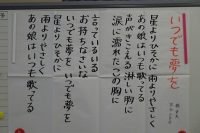 いつでも夢を
星よりひそかに 雨よりやさしく
あの娘はいつも歌ってる
声がきこえる 淋しい胸に
涙に濡れたこの胸に
言っているいる
お持ちなさいな
いつでも夢を いつでも夢を
星よりひそかに
雨よりやさしく
あの娘はいつも歌ってる